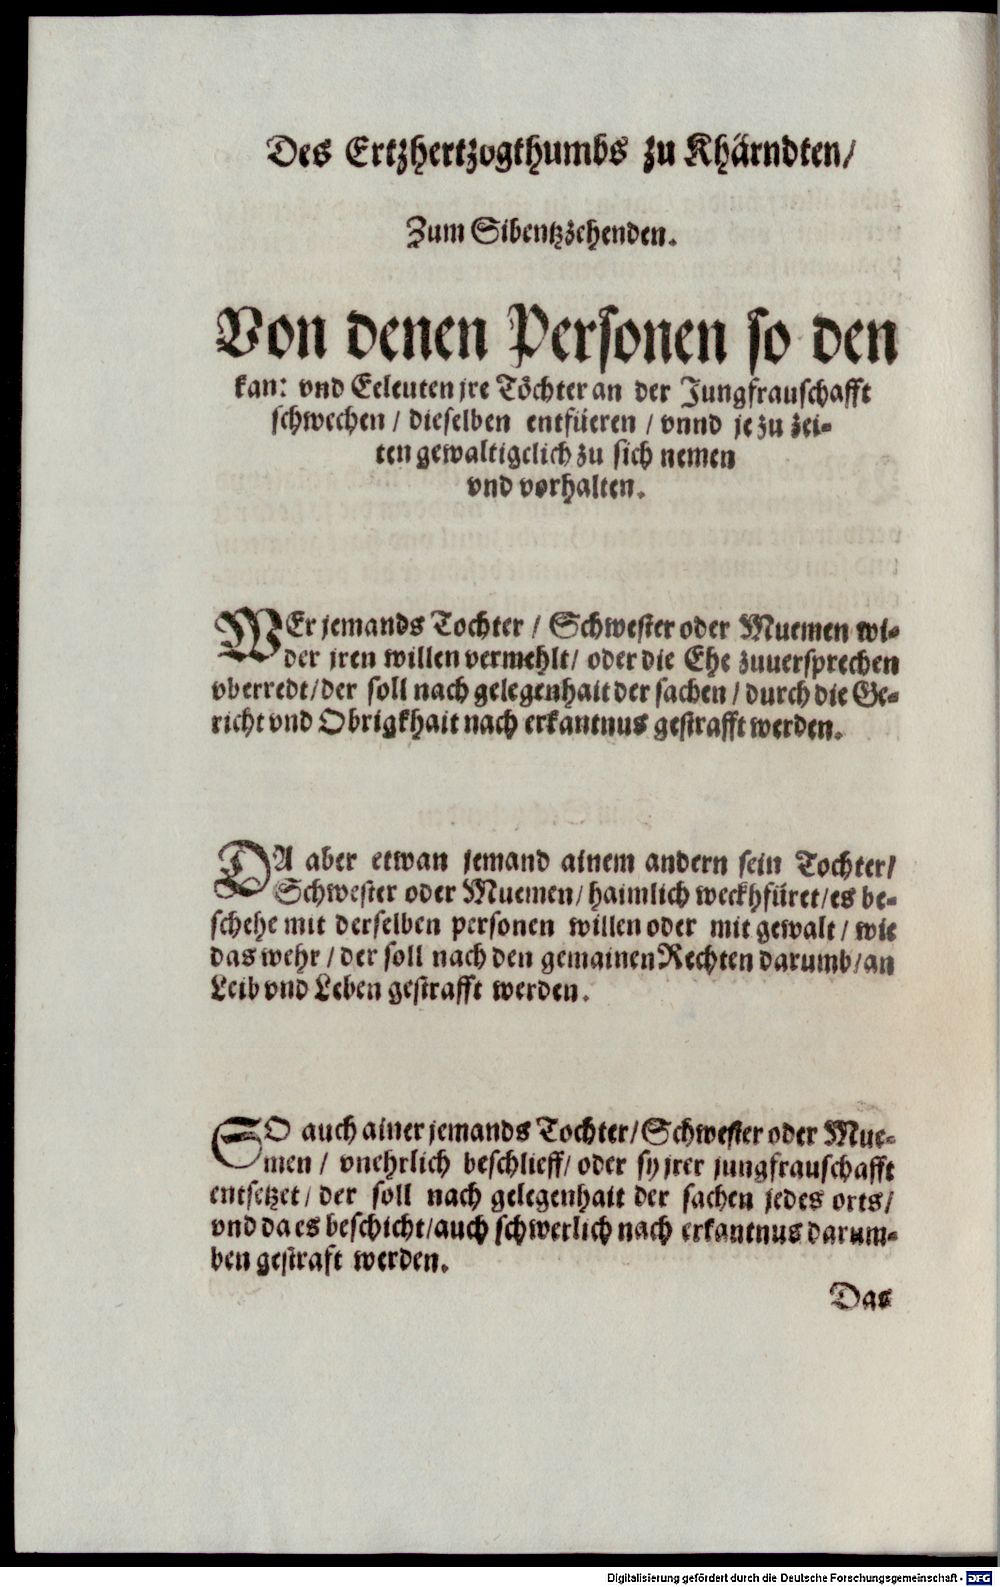 Des Ertzhertzogthumbs zu Khärndten/
Zum Sibentzzehenden.
Von denen Personen so den
kan: vnd Eeleuten jre Töchter an der Jungfrauschafft
schwechen / dieselben entfüeren / vnnd je zu zei-
ten gewaltigelich zu sich nemen
vnd vorhalten.
WEr jemands Tochter / Schwester oder Muemen wi-
der jren willen vermehlt/ oder die Ehe zuuersprechen
vberredt/der soll nach gelegenhait der sachen / durch die Ge-
richt vnd Obrigkhait nach erkantnus gestrafft werden.
DA aber etwan jemand ainem andern sein Tochter/
Schwester oder Muemen/ haimlich weckhfüret/es be-
schehe mit derselben personen willen oder mit gewalt / wie
das wehr / der soll nach den gemainen Rechten darumb/an
Leib vnd Leben gestrafft werden.
SO auch ainer jemands Tochter/Schwester oder Mue-
men / vnehrlich beschlieff/ oder sy jrer jungfrauschafft
entsetzet / der soll nach gelegenhait der sachen jedes orts/
vnd da es beschicht/auch schwerlich nach erkantnus darum-
ben gestraft werden.
Das
Digitalisierung gefördert durch die Deutsche Forschungsgemeinschaft - DFG